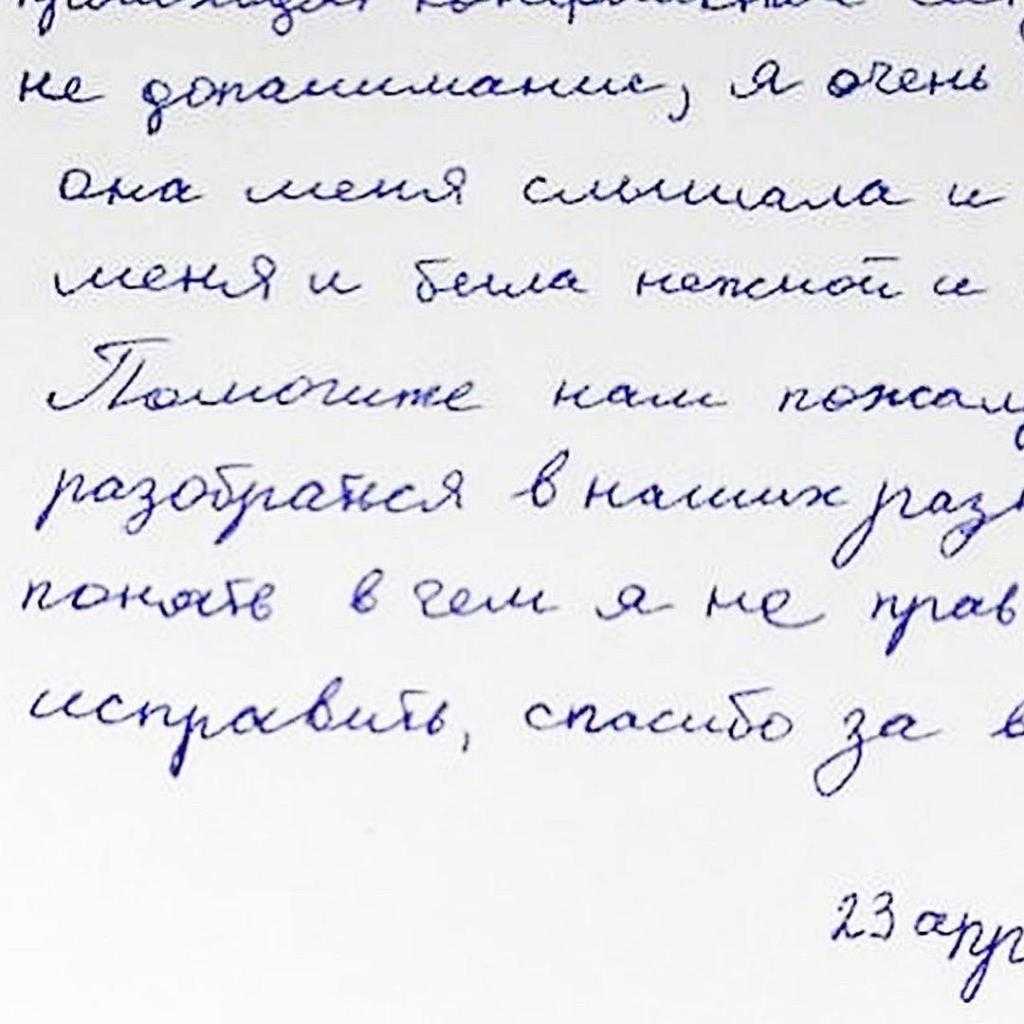 не допанимание, я очень
она меня слышала и
меня и была нежной и
Помогите нам пожалу
разобраться в наших раз
понять в чем я не прав
исправить, спасибо за в
23 апр